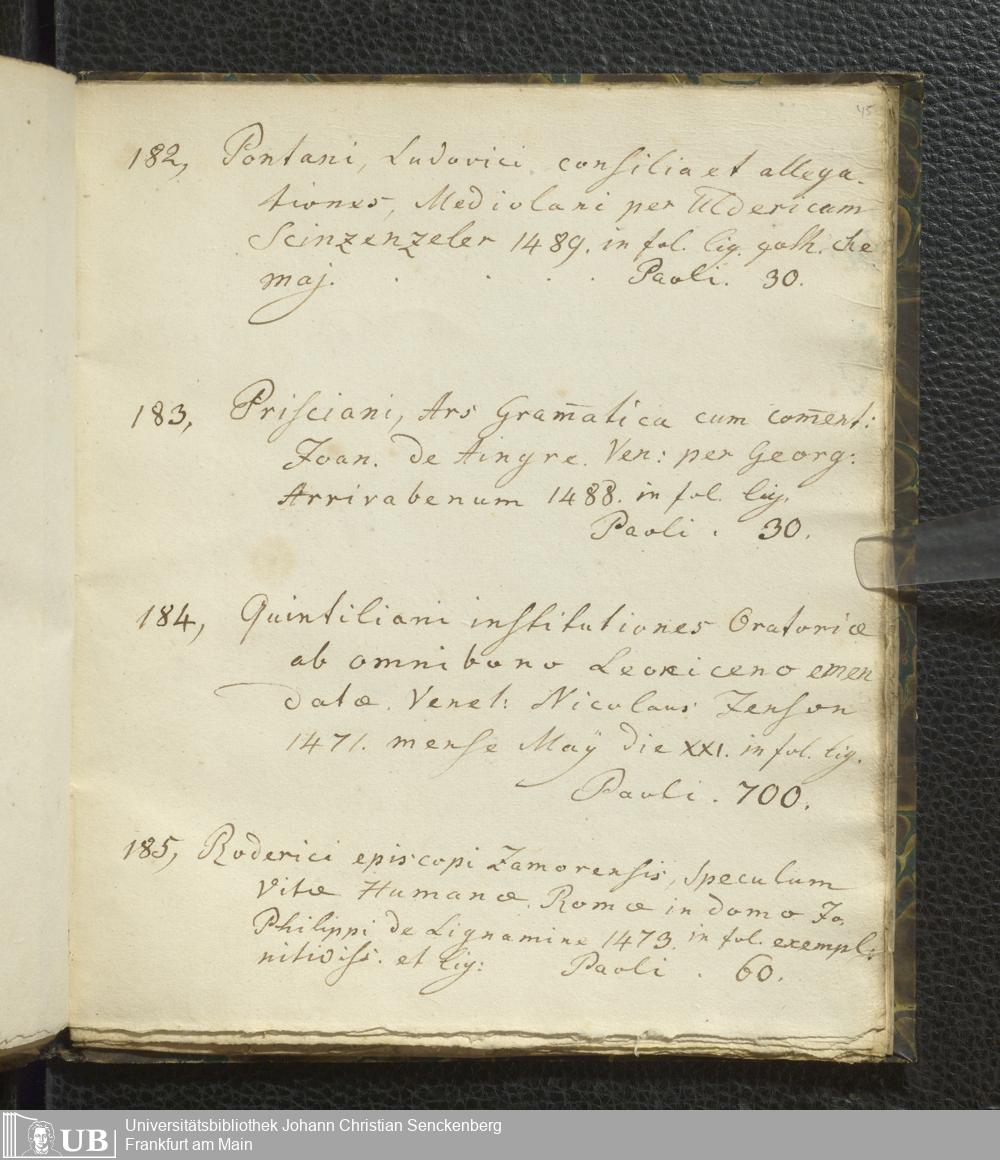 45
182, Pontani, Ludovici consilia et allega-
tiones, Mediolani per Uldericum
Scinzenzeler 1489. in fol. lig. goth. cha
maj. . . . Paoli. 30.
183, Prisciani, Ars Gram̄atica cum com̄ent:
Joan. de Aingre. Ven: per Georg:
Arrivabenum 1488. in fol. lig.
Paoli . 30.
184, Quintiliani institutiones Oratoriæ
ab omnibono Leoniceno emen
datæ. Venet: Nicolaus Jenson
1471. mense Maÿ die XXI. in fol. lig.
Paoli . 700.
185, Roderici episcopi Zamorensis, Speculum
Vitæ Humanæ. Romæ in domo Jo.
Philippi de Lignamine 1473. in fol. exempl:
nitidiss. et lig: Paoli . 60.
UB Universitätsbibliothek Johann Christian Senckenberg
Frankfurt am Main